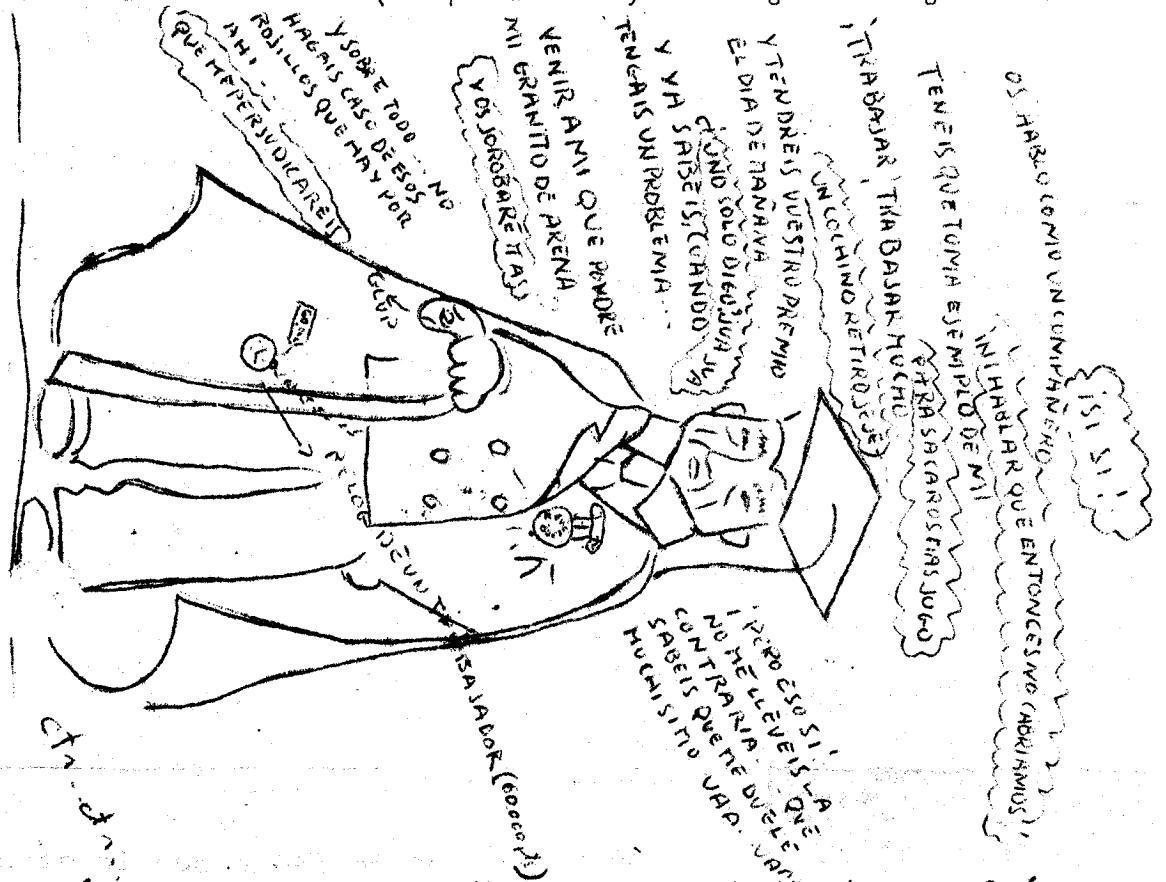 ¡SI SI!
OS HABLO COMO UN COMPAÑERO
¡NI HABLAR QUE ENTONCES NO COBRIAMOS!
TENEIS QUE TOMA EJEMPLO DE MI
PARA SACAROS MAS JUGO
¡TRABAJAR, TRABAJAR MUCHO
UN COCHINO RETIRO JEJE
Y TENDREIS VUESTRO PREMIO
EL DIA DE MAÑANA
UNO SOLO DIGO JUA JUA
Y YA SABEIS, CUANDO
TENGAIS UN PROBLEMA...
VENIR A MI QUE PONDRE
MI GRANITO DE ARENA
Y OS JOROBARE MAS
Y SOBRE TODO... NO
HAGAIS CASO DE ESOS
ROJILLOS QUE HAY POR
AHI...
QUE ME PERJUDICAREIS
¡PERO ESO SI!
NO ME LLEVEIS LA
CONTRARIA. QUE
SABEIS QUE ME DUELE
MUCHISIMO UAA. UAA
GLUP
RELOJ DE UN TRABAJADOR (60.000 Pts)